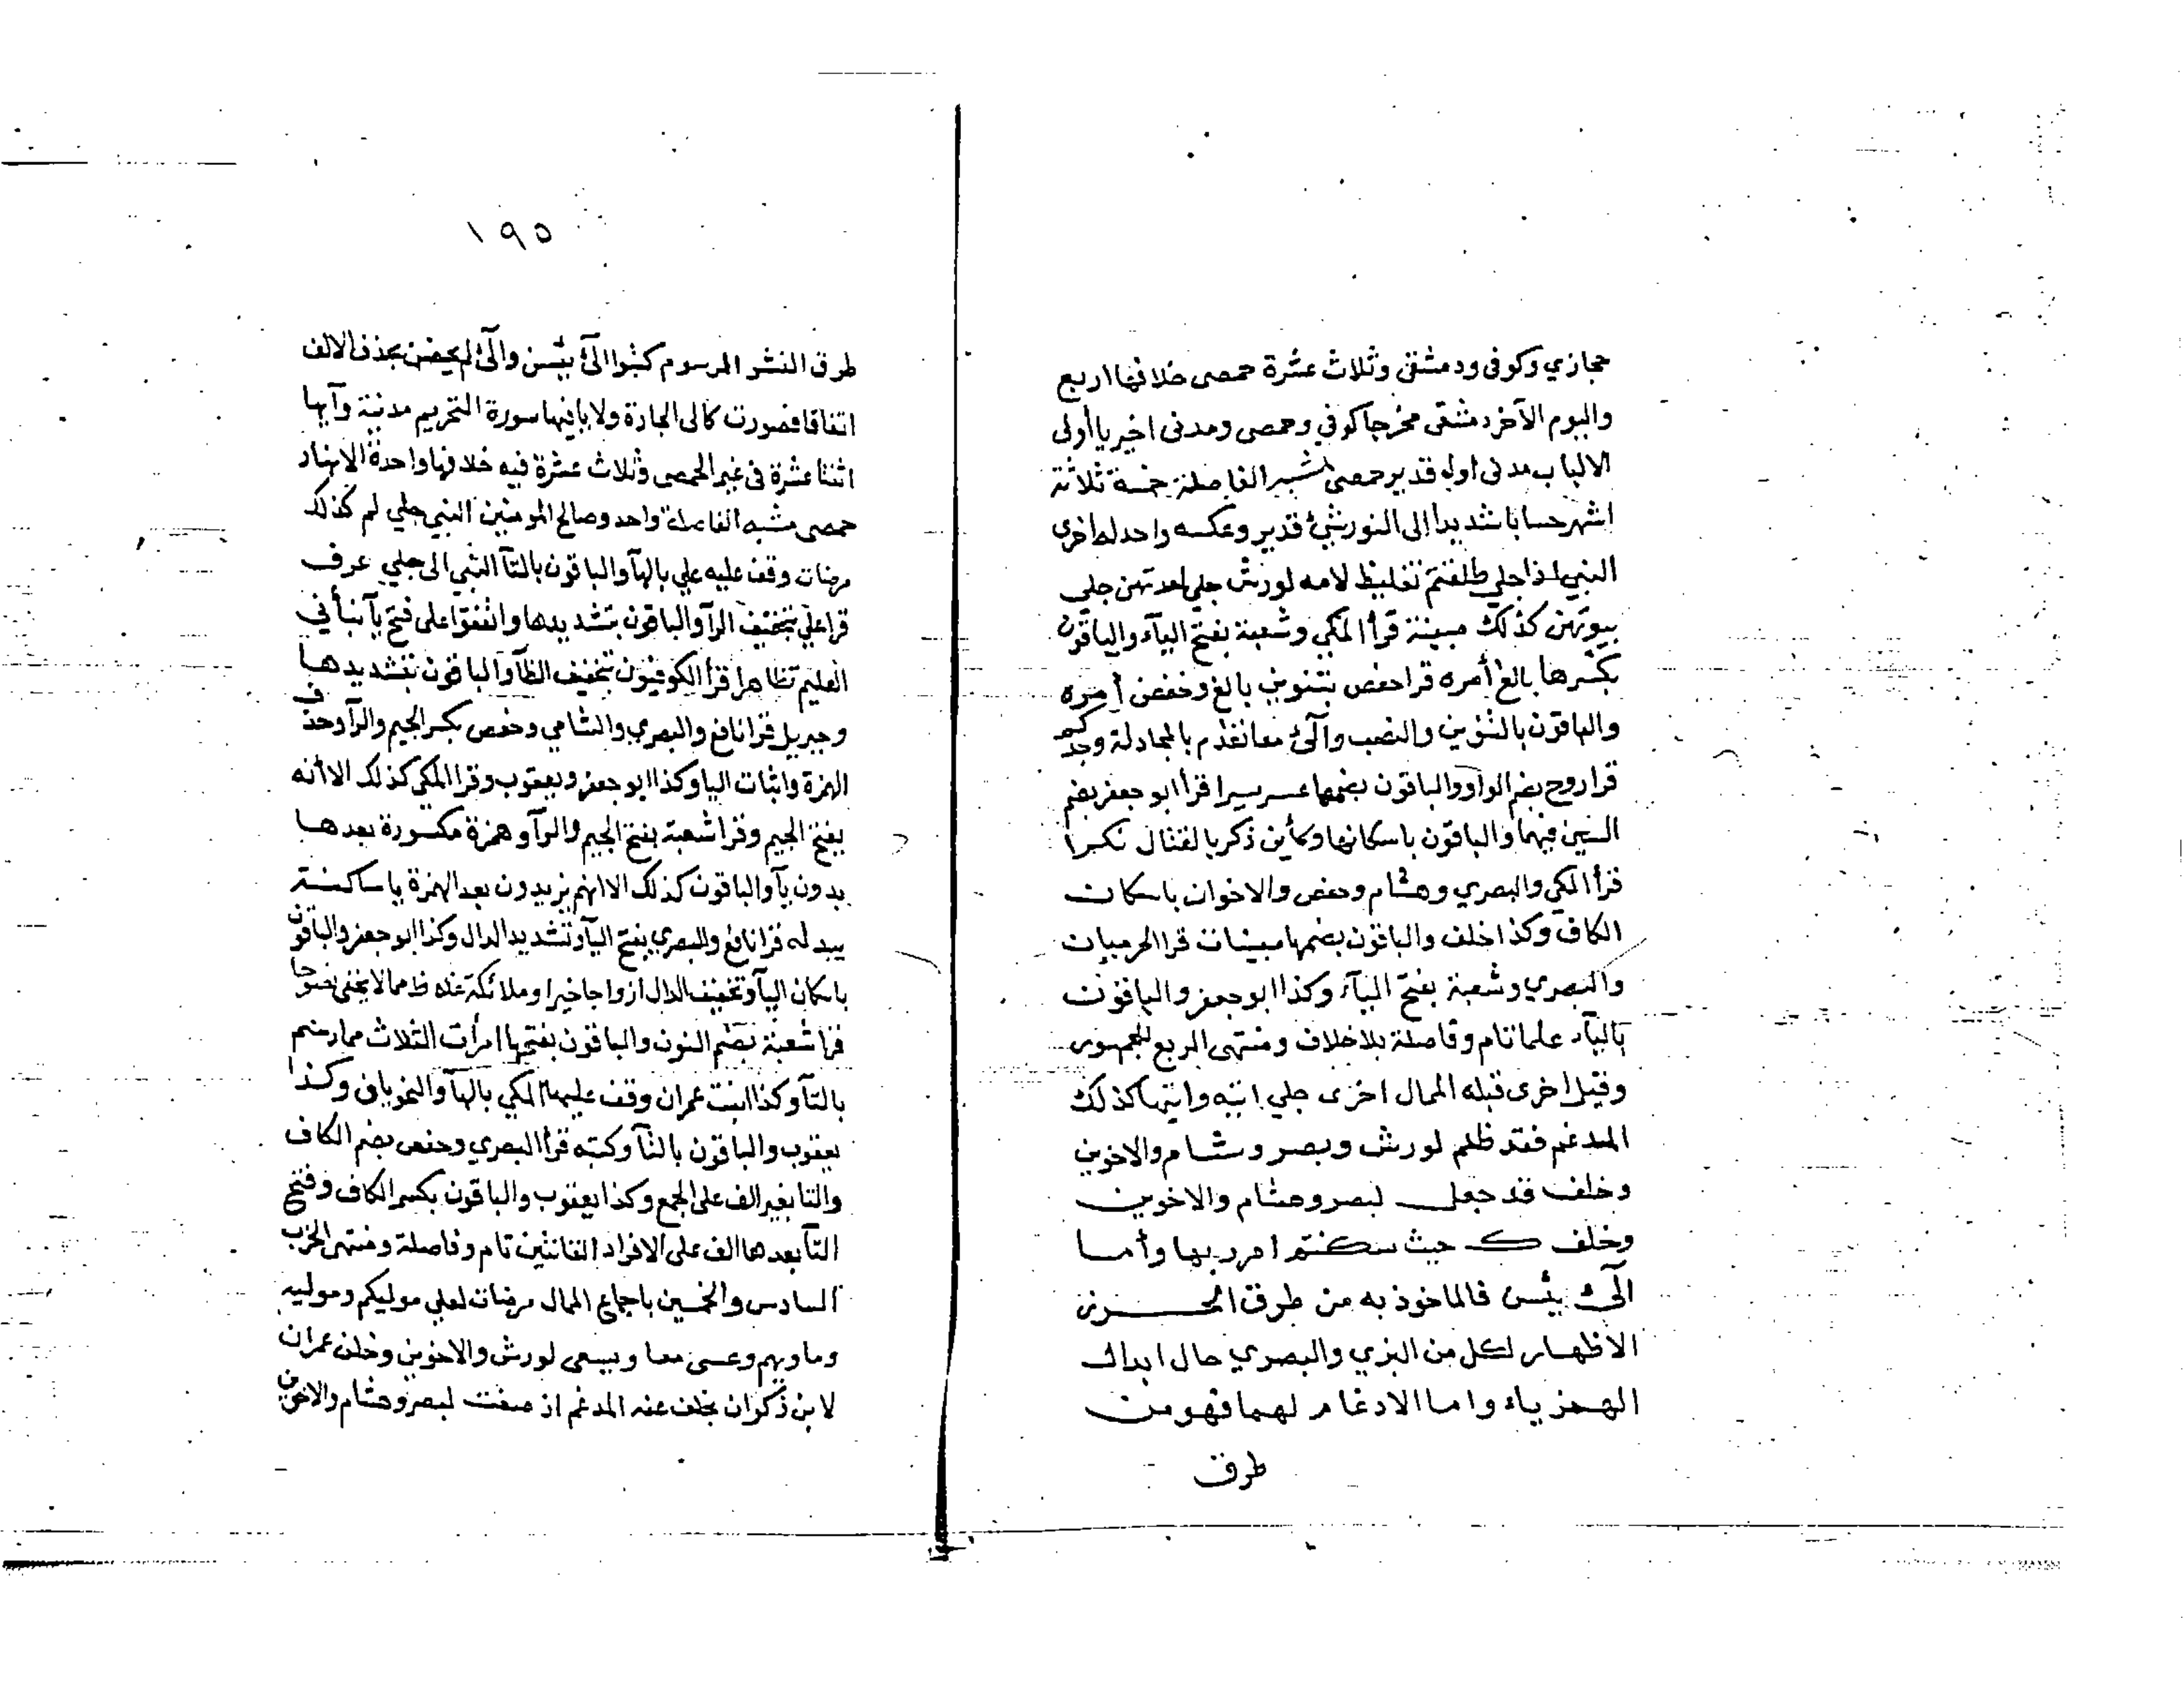 حجازي وكوفى ودمشقى وثلاث عشرة حمصى خلافها اربع
واليوم الآخر دمشقى مخرجا كوفي وحمصى ومدنى اخير يا أولى
الالباب مدنى اول قدير حمصى مشبه الفاصلة خمسة ثلاثة
اشهر حسابا شديدا الى النور شئ قدير وعكسه واحد له اخرى
النبي اذا جلي طلقتم تغليظ لامه لورش جلي لعدتهن جلى
بيوتهن كذلك مبينة قرأ المكي وشعبة بفتح الياء والباقون
بكسرها بالغ أمره قرا حفص بتنوين بالغ وخفض أمره
والباقون بالتنوين والنصب والآئ معا تقدم بالمجادلة وجدكم
قرا روح بضم الواو والباقون بضمها عسر يسرا قرأ ابو جعفر بضم
السين فيهما والباقون باسكانها وكأين ذكر بالقتال نكرا
قرأ المكي والبصري وهشام وحفص والاخوان باسكان
الكاف وكذا خلف والباقون بضمها مبينات قرا الحرميان
والبصري وشعبة بفتح الياء وكذا ابو جعفر والباقون
بالياء علما تام وفاصلة بلا خلاف ومنتهى الربع للجمهور
وقيل اخرى قبله الممال اخرى جلي اتيه واتيها كذلك
المدغم فقد ظلم لورش وبصر وشام والاخوين
وخلف قد جعل لبصر وهشام والاخوين
وخلف ك حيث سكنتم امر ربها وأما
الئ يئسن فالماخوذ به من طرق الحرز
الاظهار لكل من البزي والبصري حال ابدال
الهمز ياء واما الادغام لهما فهو من
طرق
١٩٥
طرق النشر المرسوم كتبوا الئ يئسن والئ لم يحضن بحذف الالف
اتفاقا فصورت كالى الجارة ولا يا فيها سورة التحريم مدنية وآيها
اثنتا عشرة فى غير الحمصى وثلاث عشرة فيه خلافها واحدة الانهار
حمصى مشبه الفاصلة واحد وصالح المومنين النبي جلي لم كذلك
مرضات وقف عليه علي بالهآ والباقون بالتآ النبي الى جلي عرف
قرا علي بتخفيف الرآ والباقون بتشديدها واتفقوا على فتح يآ نبأني
العليم تظاهرا قرأ الكوفيون بتخفيف الظآ والباقون بتشديدها
وجبريل قرا نافع والبصري والشامي وحفص بكسر الجيم والرآ وحذف
الهمزة واثبات اليا وكذا ابو جعفر ويعقوب وقرا المكي كذلك الا أنه
بفتح الجيم وقرا شعبة بفتح الجيم والرآ وهمزة مكسورة بعدها
بدون يآ والباقون كذلك الا انهم يزيدون بعد الهمزة يا ساكنة
يبدله قرا نافع والبصري بفتح اليآ وتشديد الدال وكذا ابو جعفر والباقون
باسكان اليآ وتخفيف الدال ازواجا خيرا وملائكة غلاظ مما لا يخفى نصوحا
قرا شعبة بضم النون والباقون بفتحها امرأت الثلاث مما رسم
بالتآ وكذا ابنت عمران وقف عليها المكي بالهآ والنحويان وكذا
يعقوب والباقون بالتآ وكتبه قرأ البصري وحفص بضم الكاف
والتا بغير الف على الجمع وكذا يعقوب والباقون بكسر الكاف وفتح
التآ بعدها الف على الافراد القانتين تام وفاصلة ومنتهى الحزب
السادس والخمسين باجماع الممال مرضات لعلي موليكم وموليه
وماويهم وعسى معا ويسعى لورش والاخوين وخلف عمران
لابن ذكوان بخلف عنه المدغم اذ صغت لبصر وهشام والاخوين